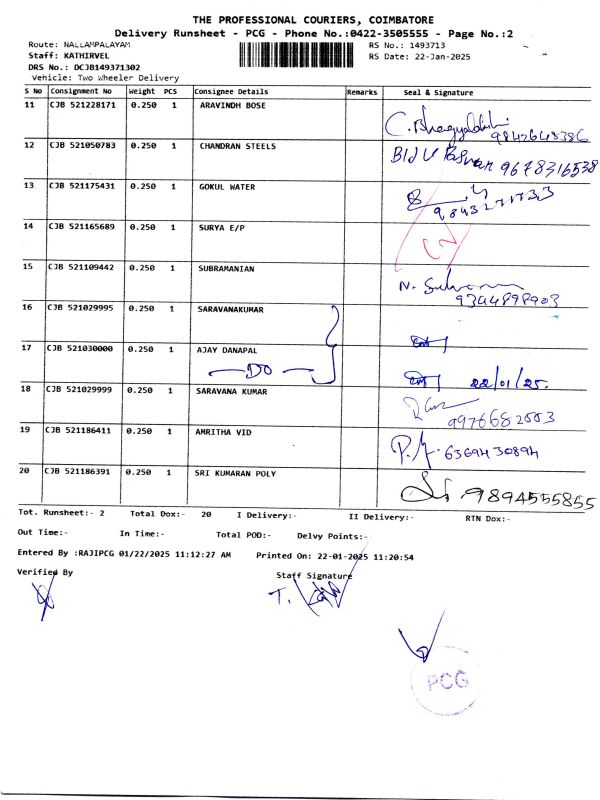 THE PROFESSIONAL COURIERS, COIMBATORE
Delivery Runsheet - PCG - Phone No.:0422-3505555 - Page No.:2
Route: NALLAMPALAYAM
RS No.: 1493713
Staff: KATHIRVEL
RS Date: 22-Jan-2025
DRS No.: DCJB149371302
Vehicle: Two Wheeler Delivery
S No Consignment No Weight PCS Consignee Details Remarks Seal & Signature
11 CJB 521228171 0.250 1 ARAVINDH BOSE
9842648386
12 CJB 521050783 0.250 1 CHANDRAN STEELS
9678316538
13 CJB 521175431 0.250 1 GOKUL WATER
14 CJB 521165689 0.250 1 SURYA E/P
15 CJB 521109442 0.250 1 SUBRAMANIAN
16 CJB 521029995 0.250 1 SARAVANAKUMAR
17 CJB 521030000 0.250 1 AJAY DANAPAL
DO
22/01/25.
18 CJB 521029999 0.250 1 SARAVANA KUMAR
19 CJB 521186411 0.250 1 AMRITHA VID
20 CJB 521186391 0.250 1 SRI KUMARAN POLY
9894555855
Tot. Runsheet:- 2 Total Dox:- 20 I Delivery:- II Delivery:- RTN Dox:-
Out Time:- In Time:- Total POD:- Delvy Points:-
Entered By :RAJIPCG 01/22/2025 11:12:27 AM Printed On: 22-01-2025 11:20:54
Verified By Staff Signature
PCG